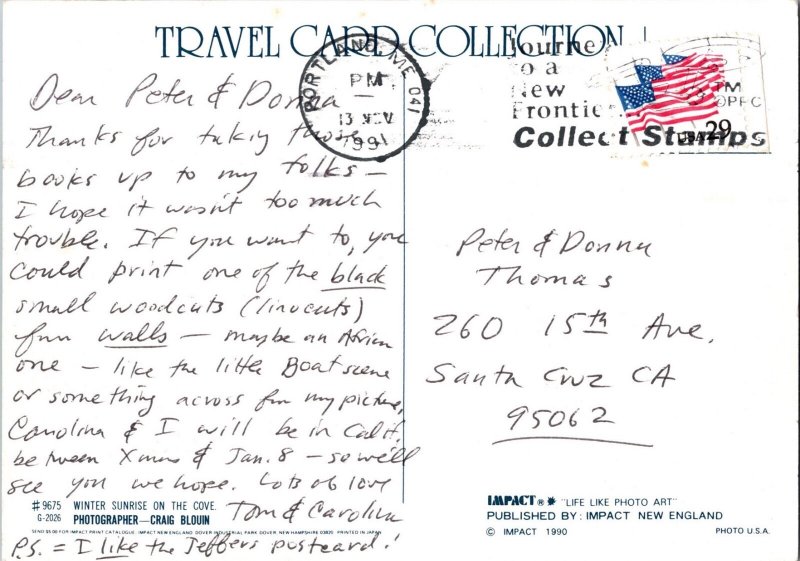 TRAVEL CARD COLLECTION
PORTLAND, ME 041
PM
13 NOV
1991
Journey
to a
New
Frontier
Collect Stamps
TM
OPFC
USA 29
Dear Peter & Donna
Thanks for taking those
books up to my folks –
I hope it wasn't too much
trouble. If you want to, you
could print one of the black
small woodcuts (linocuts)
from walls – maybe an African
one – like the little Boat scene
or something across from my picture.
Carolina & I will be in Calif.
between Xmas & Jan. 8 – so we'll
see you we hope. Lots of love
Tom & Carolina
P.S. = I like the Jeffers postcard!
Peter & Donna
Thomas
260 15th Ave.
Santa Cruz CA
95062
#9675 WINTER SUNRISE ON THE COVE.
G-2026 PHOTOGRAPHER—CRAIG BLOUIN
SEND $5.00 FOR IMPACT PRINT CATALOGUE. IMPACT NEW ENGLAND DOVER INDUSTRIAL PARK DOVER NEW HAMPSHIRE 03820 PRINTED IN JAPAN
IMPACT® "LIFE LIKE PHOTO ART"
PUBLISHED BY: IMPACT NEW ENGLAND
© IMPACT 1990 PHOTO U.S.A.